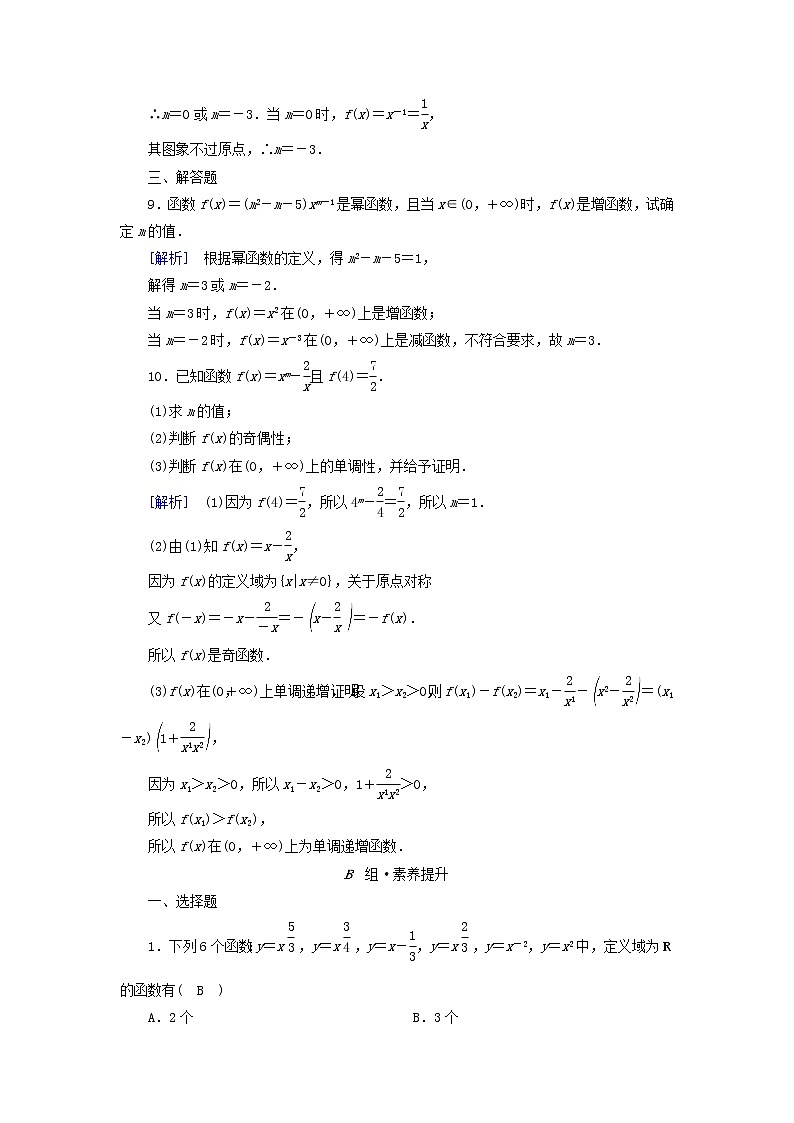 ∴m＝0 或 m＝－3．当 m＝0 时，f(x)＝x－1＝1/x，
其图象不过原点，∴m＝－3．
三、解答题
9．函数 f(x)＝(m2－m－5)xm－1 是幂函数，且当 x∈(0，＋∞)时，f(x)是增函数，试确
定 m 的值．
[解析]　根据幂函数的定义，得 m2－m－5＝1，
解得 m＝3 或 m＝－2．
当 m＝3 时，f(x)＝x2 在(0，＋∞)上是增函数；
当 m＝－2 时，f(x)＝x－3 在(0，＋∞)上是减函数，不符合要求，故 m＝3．
10．已知函数 f(x)＝xm－2/x且 f(4)＝7/2．
(1)求 m 的值；
(2)判断 f(x)的奇偶性；
(3)判断 f(x)在(0，＋∞)上的单调性，并给予证明．
[解析]　(1)因为 f(4)＝7/2，所以 4m－2/4＝7/2，所以 m＝1．
(2)由(1)知 f(x)＝x－2/x，
因为 f(x)的定义域为{x|x≠0}，关于原点对称
又 f(－x)＝－x－2/－x＝－(x－2/x)＝－f(x)．
所以 f(x)是奇函数．
(3)f(x)在(0，＋∞)上单调递增证明设 x1＞x2＞0则 f(x1)－f(x2)＝x1－2/x1－(x2－2/x2)＝(x1
－x2)(1＋2/x1x2)，
因为 x1＞x2＞0，所以 x1－x2＞0，1＋2/x1x2＞0，
所以 f(x1)＞f(x2)，
所以 f(x)在(0，＋∞)上为单调递增函数．
B　组·素养提升
一、选择题
1．下列 6 个函数：y＝x 5/3，y＝x 3/4，y＝x－1/3，y＝x 2/3，y＝x－2，y＝x2 中，定义域为 R
的函数有(　B　)
A．2 个　B．3 个